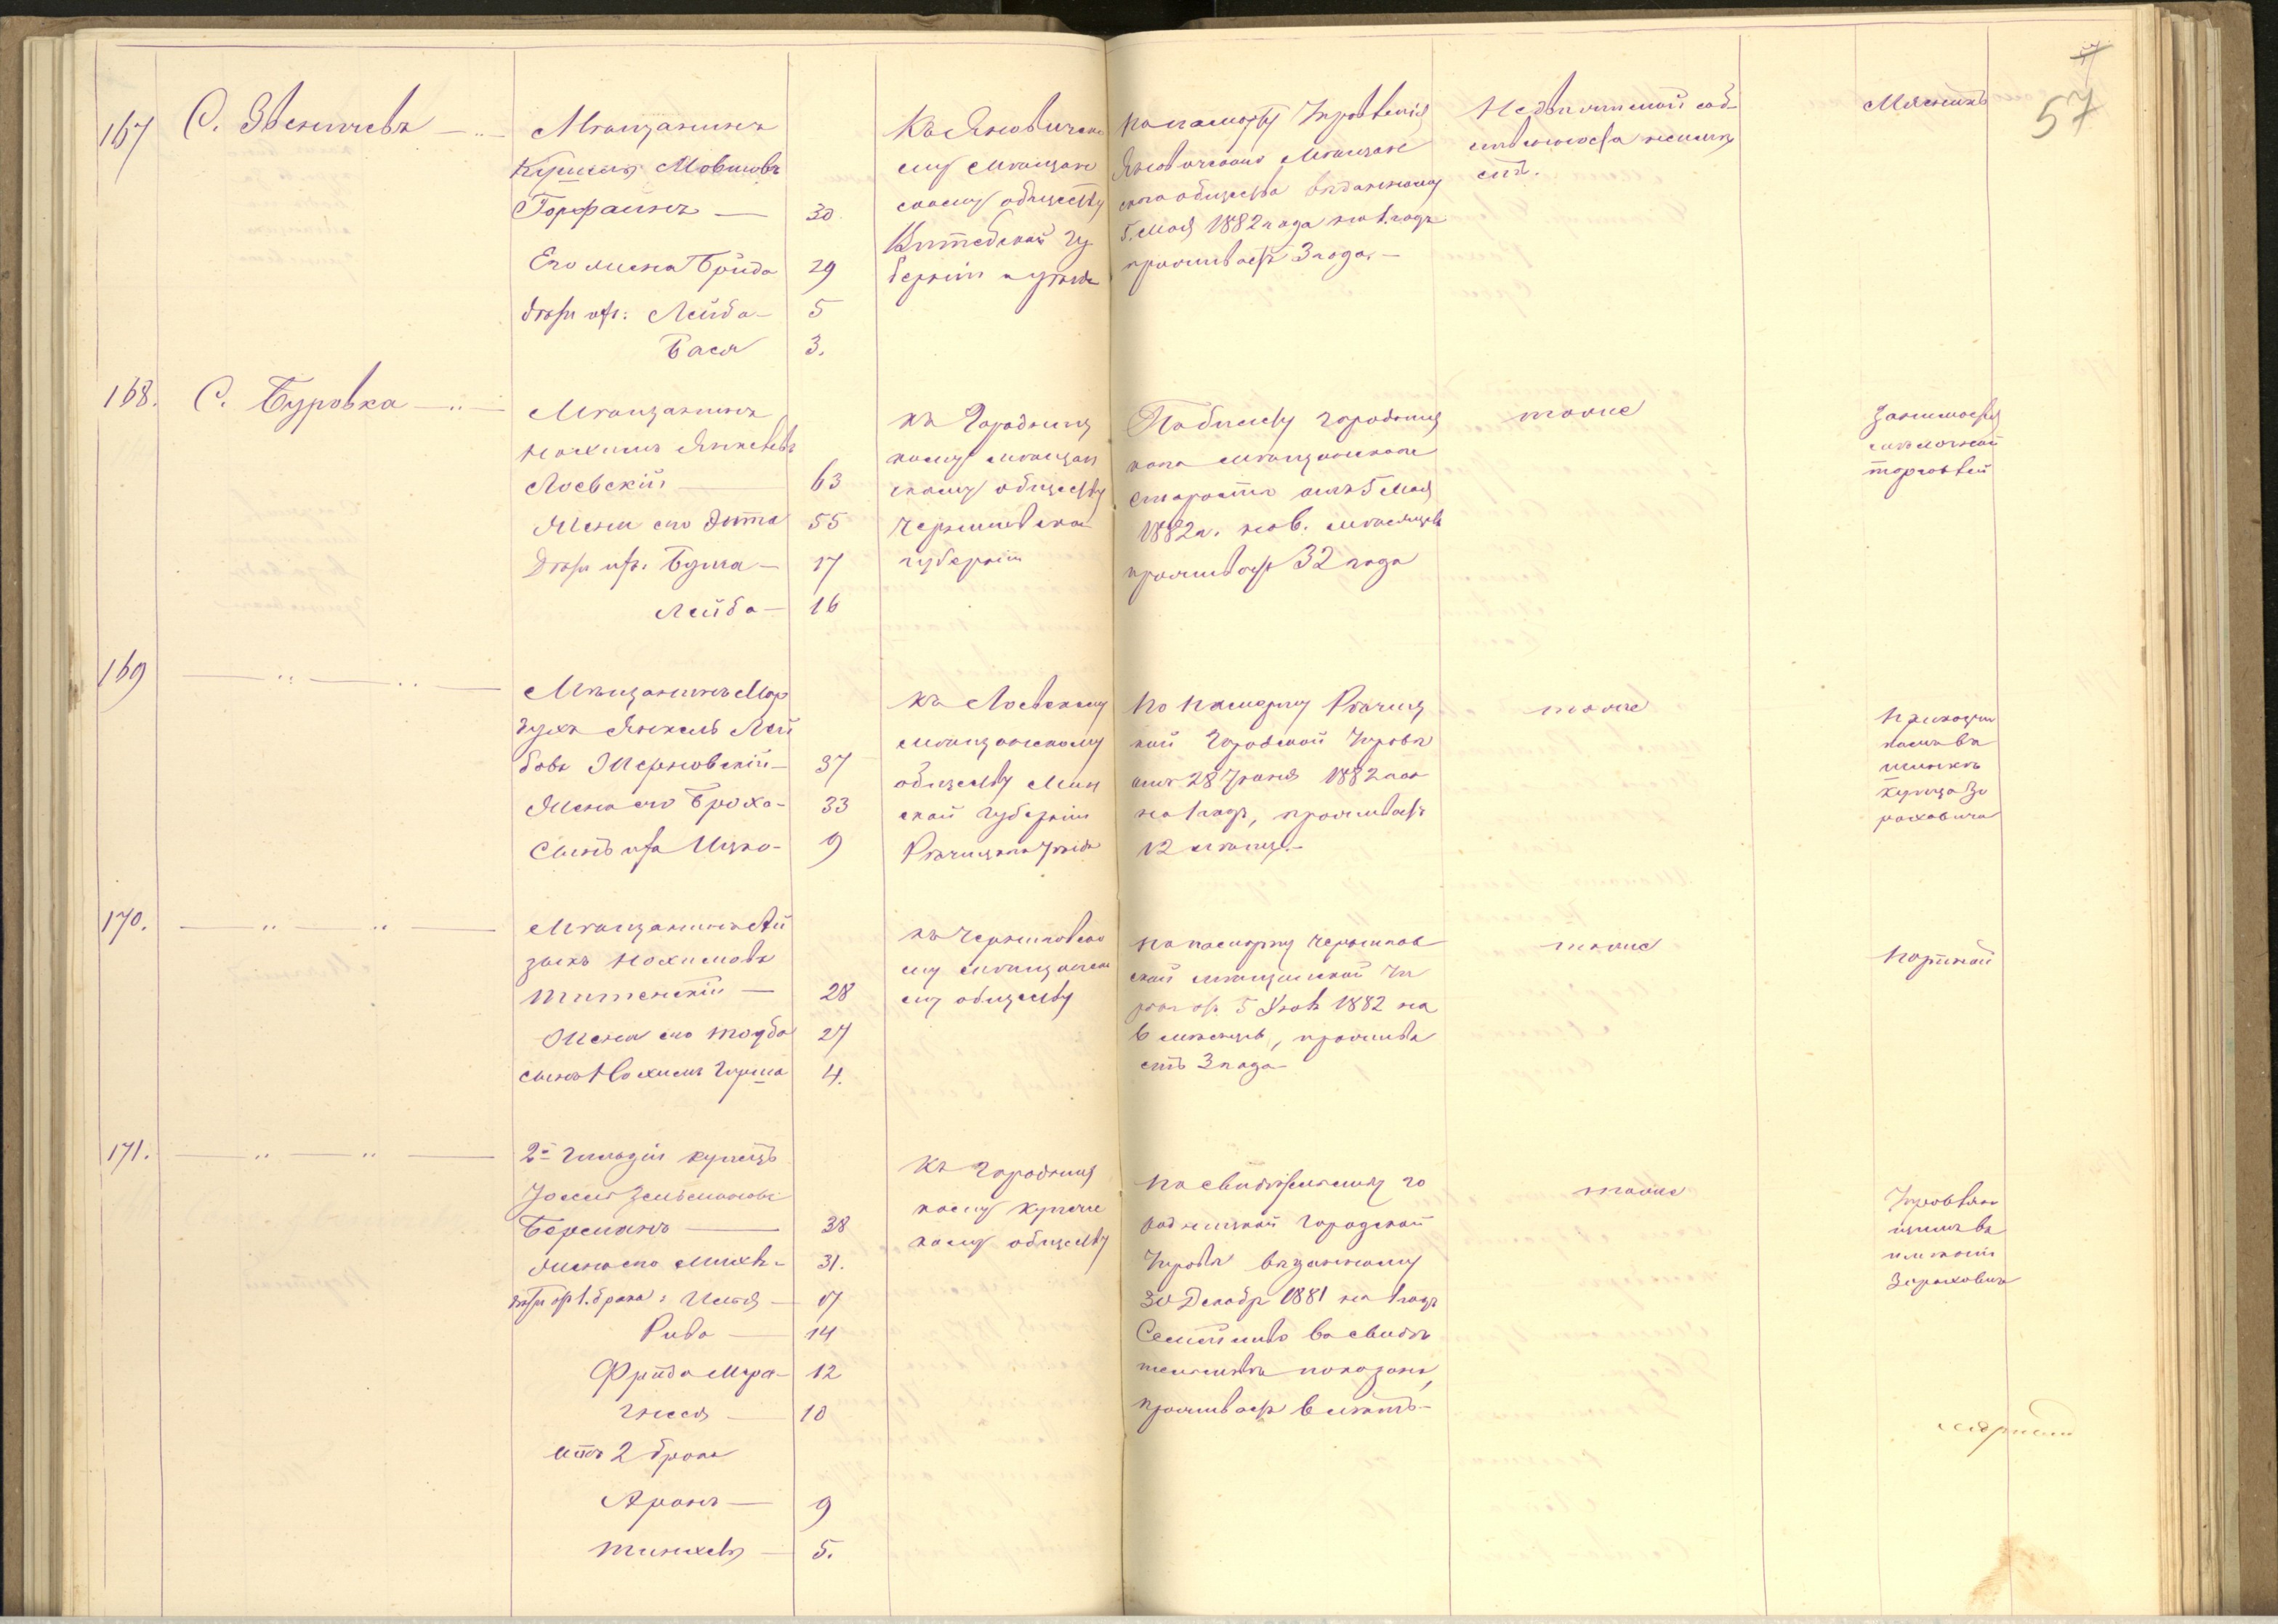 57
167
С. Звеничевъ
Мѣщанинъ
Кушель Мовшовъ
Горфаинъ — 30
Его жена Бройда 29
дѣти ихъ: Лейба — 5
Бася 3.
Къ Яновичско
му мѣщан
скому обществу
Витебской гу
берніи и уѣзда
по паспорту Управленія
Яновичскаго мѣщанс
каго общества выданному
5. Мая 1882 года на 1. годъ
проживаетъ 3 года. —
Недвижимой соб
ственности не имѣ
етъ.
Мясникъ
168.
С. Буровка
Мѣщанинъ
Нохимъ Янкелевъ
Лоевскій — 63
Жена его Этта 55
Дѣти ихъ: Бума — 17
Лейба — 16
къ Городниц
кому мѣщан
скому обществу
Черниговской
губерніи
По билету Городниц
каго мѣщанскаго
старосты отъ 5 Мая
1882 г. на 6. мѣсяцевъ
проживаетъ 32 года
тоже
Занимается
мѣлочной
торговлей
169
Мѣщанинъ Мор
духъ Янкель Лей
бовъ Жерновскій — 37
Жена его Броха — 33
Сынъ ихъ Ицко — 9
къ Лоевскому
мѣщанскому
обществу Мин
ской губерніи
Рѣчицкаго уѣзда
по паспорту Рѣчиц
кой Городской Управы
отъ 28 Іюня 1882 года
на 1 годъ, проживаетъ
12 мѣсяц. —
тоже
Прикащи
комъ въ
шинкѣ
купца За
раховича
170.
Мѣщанинъ Ай
зыкъ Нохимовъ
— 28
Жена его Тойба 27
сынъ Нохимъ Гирша 4.
къ Черниговско
му мѣщанско
му обществу
по паспорту Чернигов
ской мѣщанской Уп
равы отъ 5 1882 на
6 мѣсяцевъ, прожива
етъ 3 года —
тоже
Портной
171.
2й гильдіи купецъ
Зельмановъ
Берманъ — 38
Жена его Михля — 31.
дѣти отъ 1. брака: — 17
Рива — 14
Фрейда Мера — 12
Гнеся — 10
отъ 2 брака
Аронъ — 9
5.
къ Городниц
кому купече
кому обществу
по свидѣтельству Го
родницкой Городской
Управы выданному
30 Декабр 1881 на 1 годъ
Семейство въ свидѣ
тельствѣ показано,
проживаетъ 6 лѣтъ —
тоже
Управляю
щимъ въ
имѣніи
Зараховича